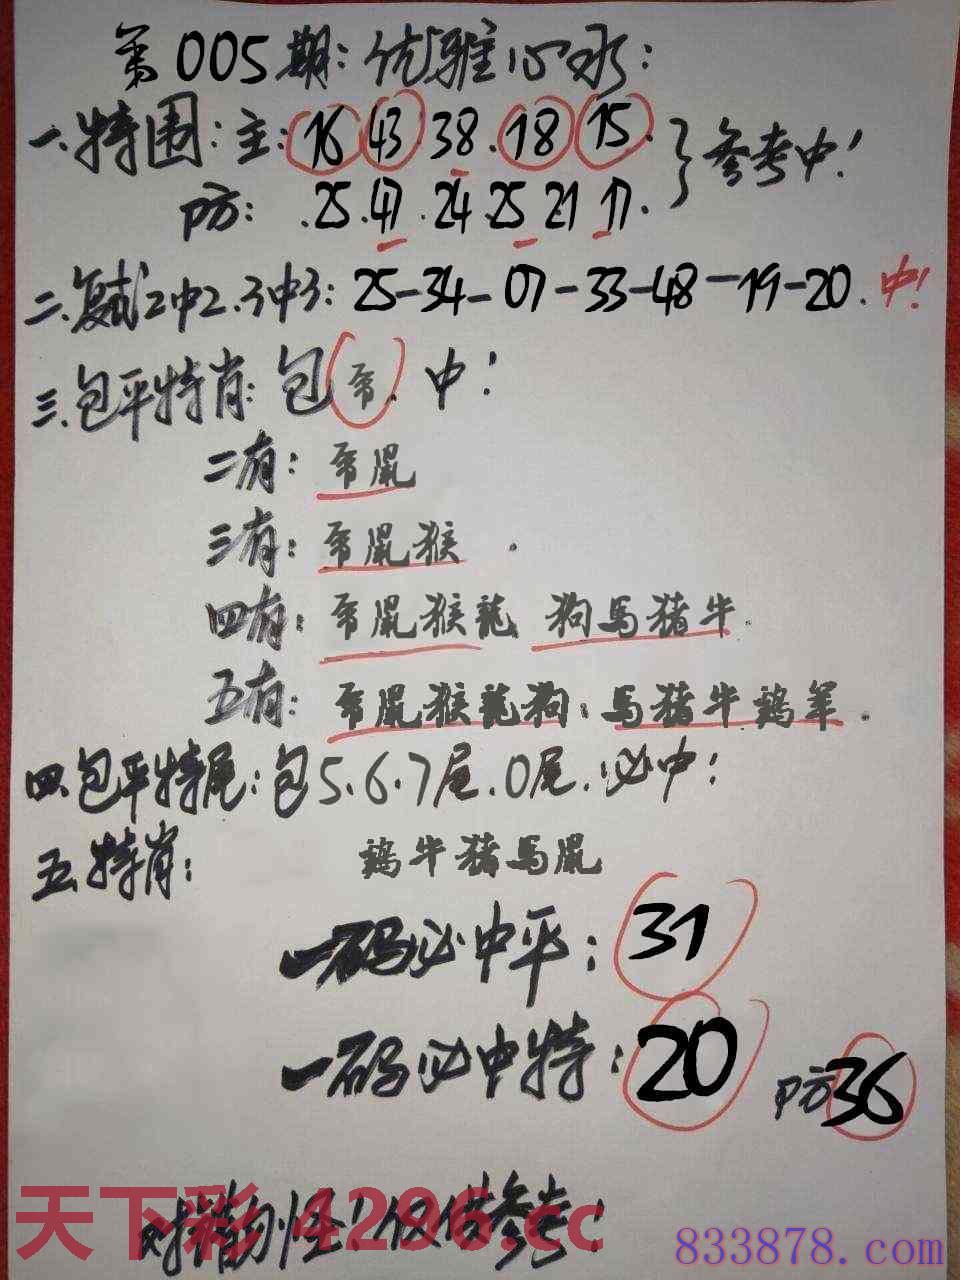 第005期:优雅心水:
一.特围:主:16.43.38.18.15. }参考中!
防: .25.47.24.25 21 17.
二.复试2中2.3中3: 25-34-07-33-48-19-20.中!
三.包平特肖:包 . 中!
二有:鼠
三有:鼠猴 .
四有:鼠猴龍 狗馬猪牛.
五有:鼠猴龍狗.馬猪牛鷄羊.
四.包平特尾:包5.6.7尾.0尾.必中!
五.特肖: 鷄牛猪馬鼠
一码必中平:31
一码必中特:20 防36
天下彩4296.cc
对错勿怪!仅供参考!
833878.com